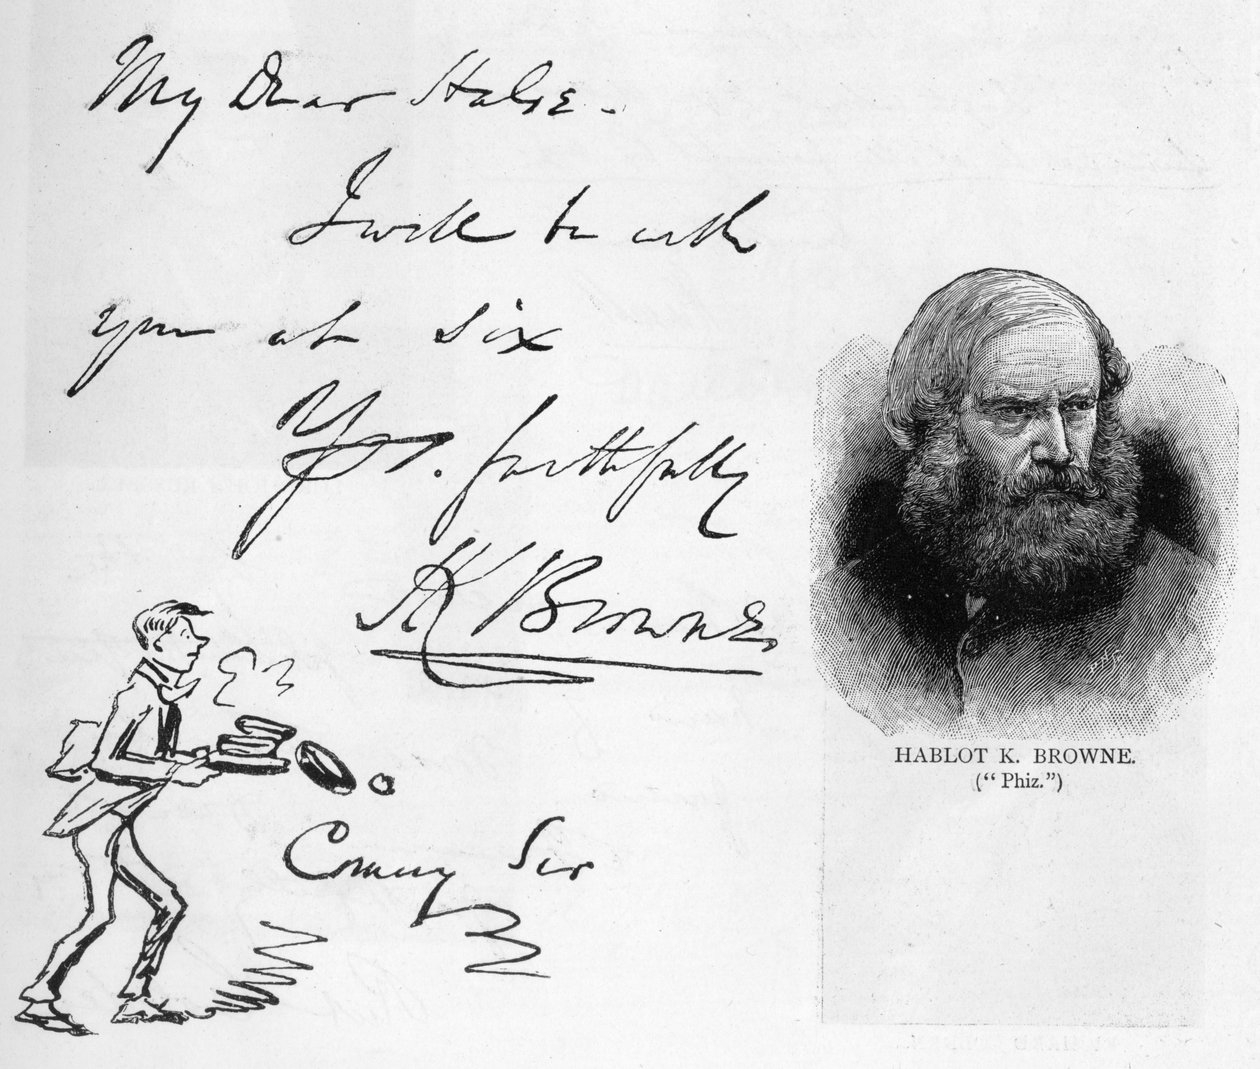 My Dear Halse.
I will be with
you at six
Yrs. faithfully
HK Browne,
Coming Sir
HABLOT K. BROWNE.
(“Phiz.”)